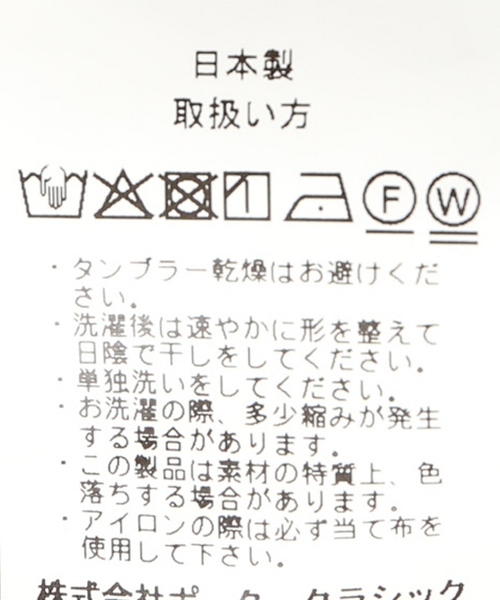 日本製
取扱い方
F W
・タンブラー乾燥はお避けくだ
さい。
・洗濯後は速やかに形を整えて
日陰で干しをしてください。
・単独洗いをしてください。
・お洗濯の際、多少縮みが発生
する場合があります。
・この製品は素材の特質上、色
落ちする場合があります。
・アイロンの際は必ず当て布を
使用して下さい。
株式会社ポータークラシック